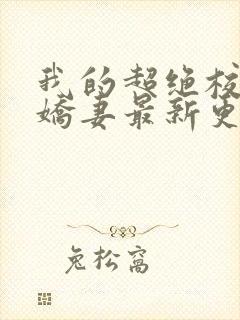 我的超绝校
娇妻最新更
兔松窝